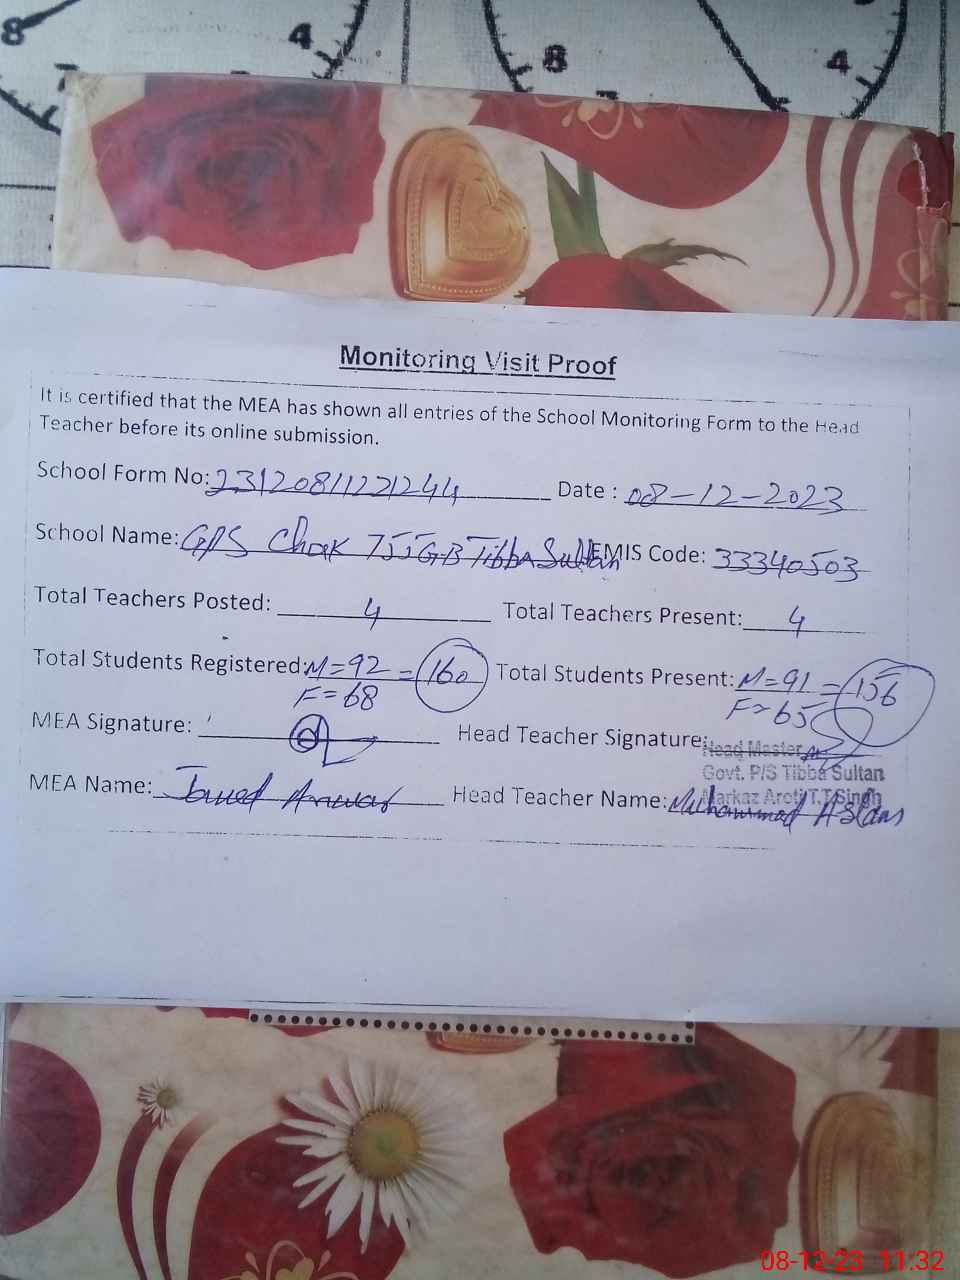 8
4
7
8
4
7
Monitoring Visit Proof
It is certified that the MEA has shown all entries of the School Monitoring Form to the Head
Teacher before its online submission.
School Form No: 23120811221244 Date : 08-12-2023
School Name: GPS Chak 755 GB Tibba Sultan EMIS Code: 33340503
Total Teachers Posted: 4 Total Teachers Present: 4
Total Students Registered: M=92 = 160 Total Students Present: M=91 = 156
F=68 F=65
MEA Signature: Head Teacher Signature:
Head Master
Govt. P/S Tibba Sultan
Markaz Aroti T.T.Singh
MEA Name: Javed Anwar Head Teacher Name: Muhammad Aslam
08-12-23 11:32